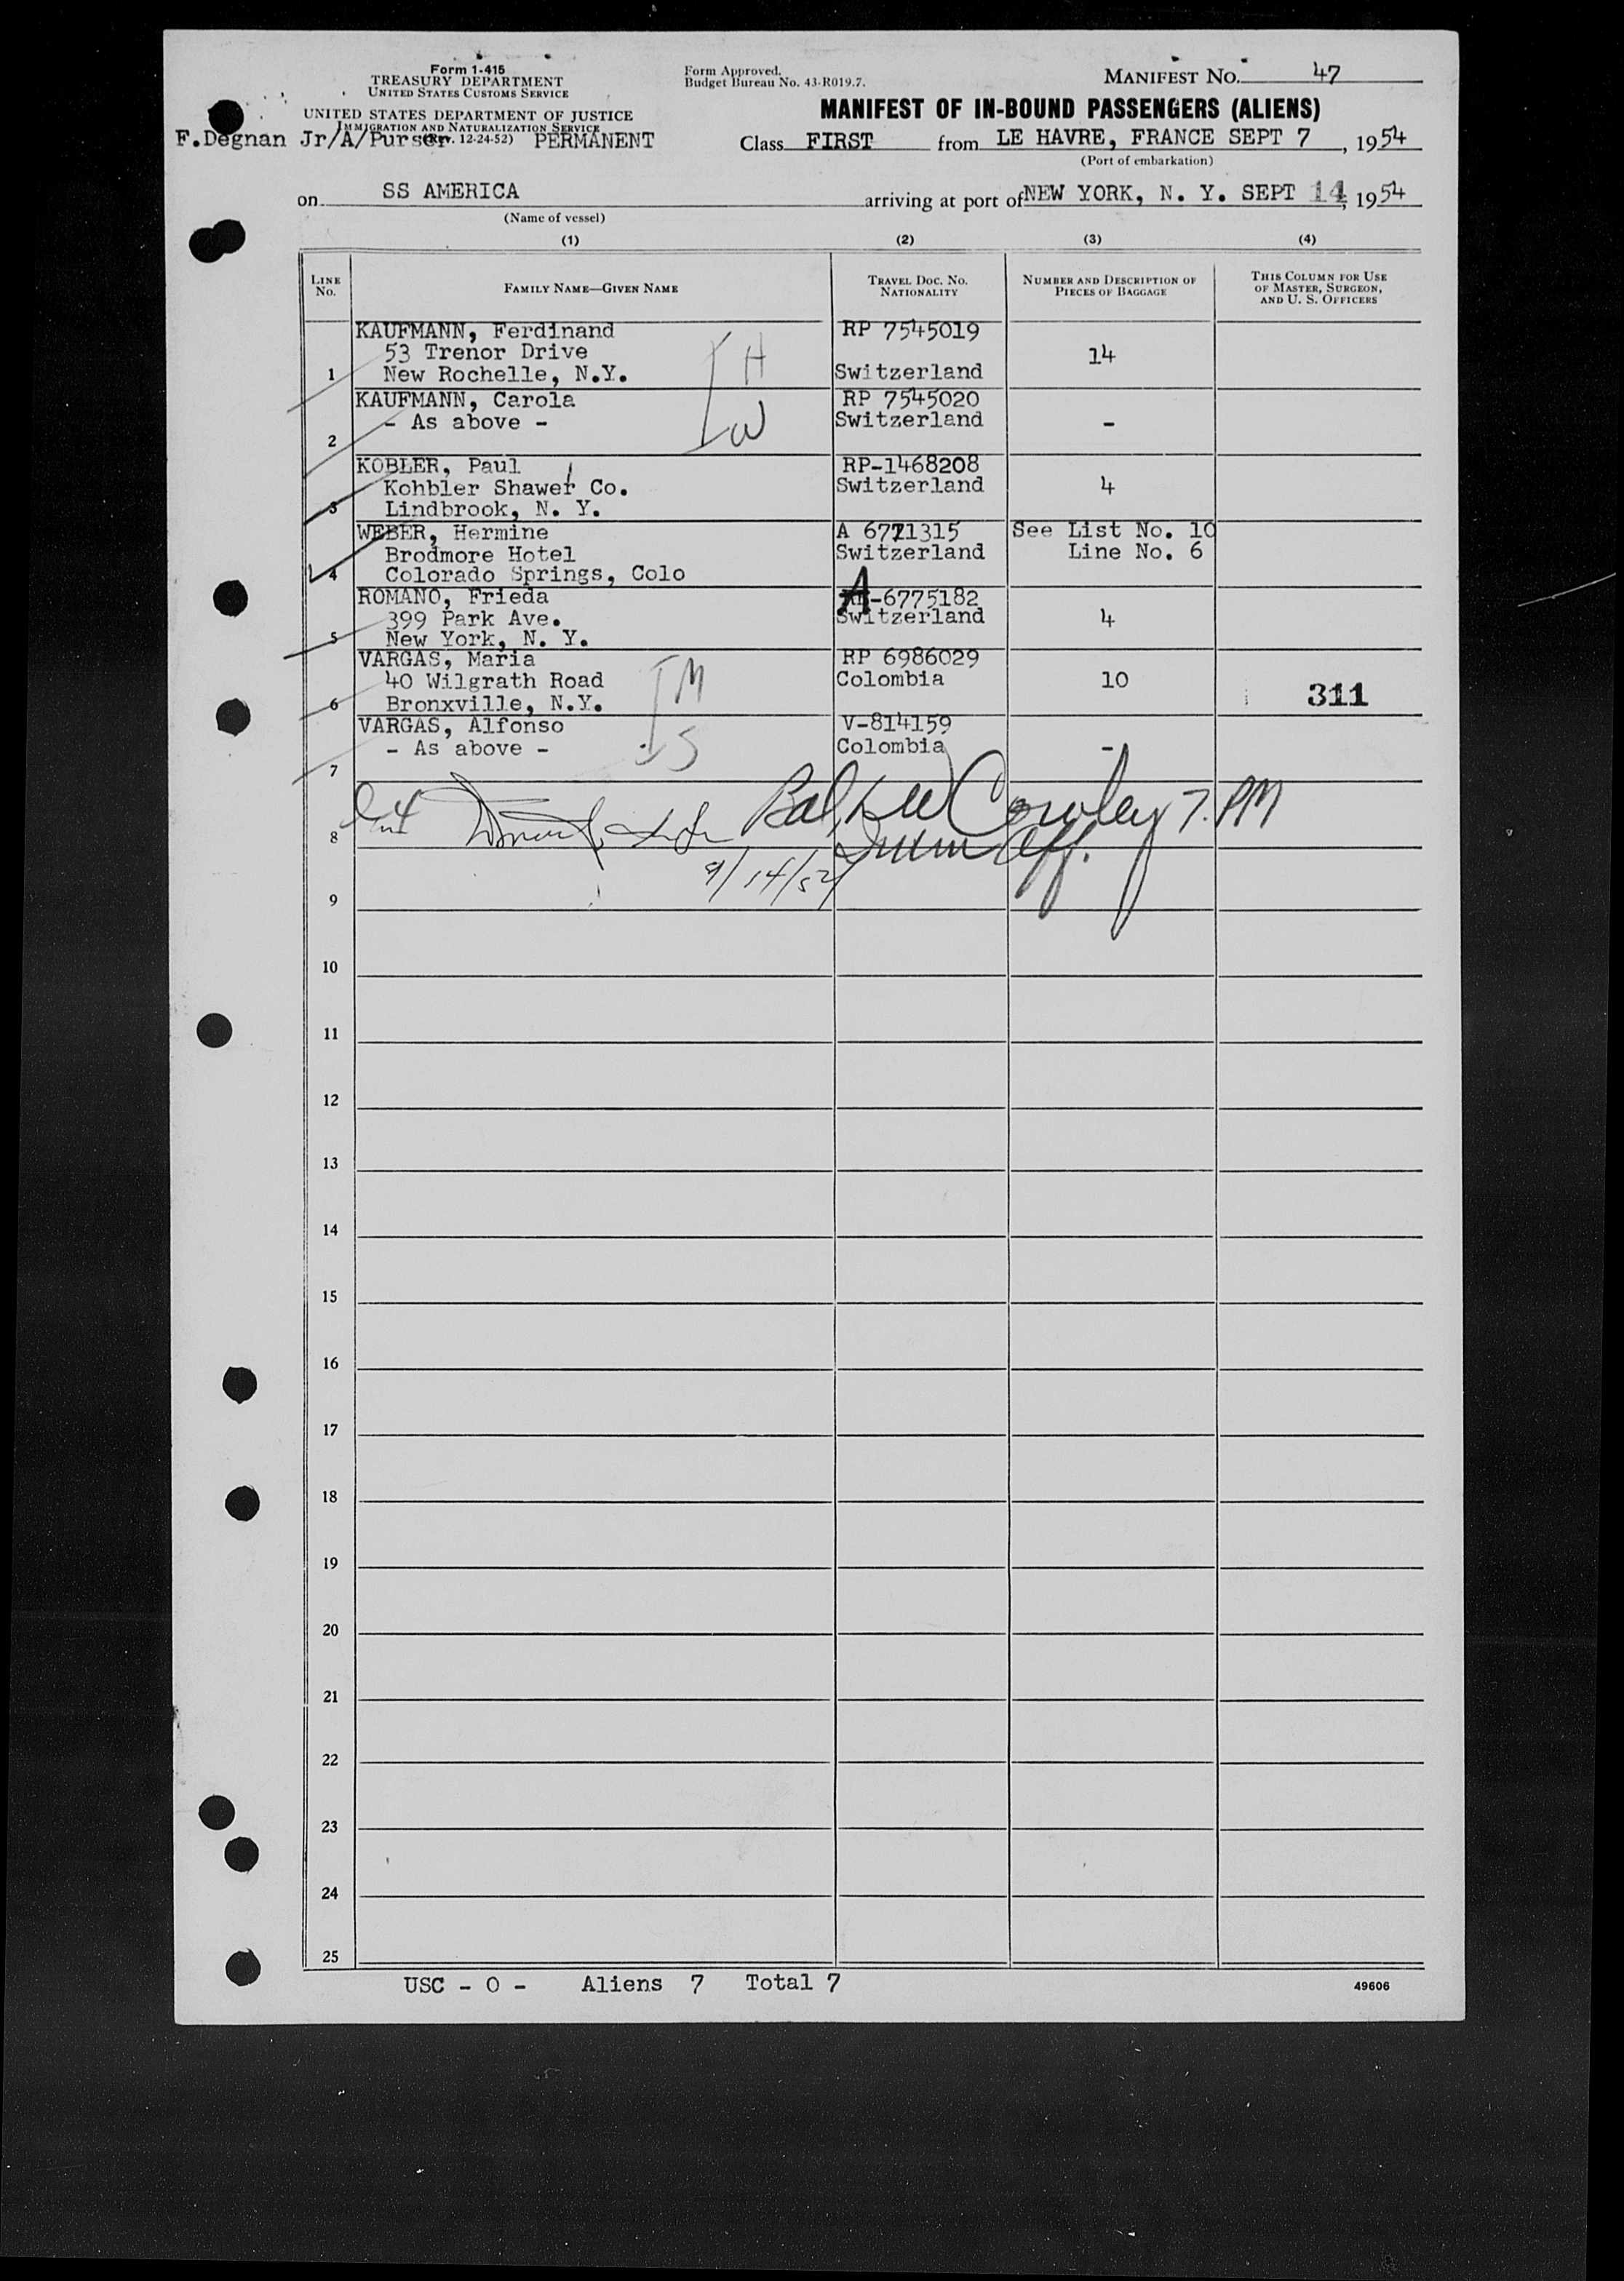 Form 1-415
TREASURY DEPARTMENT
UNITED STATES CUSTOMS SERVICE
UNITED STATES DEPARTMENT OF JUSTICE
IMMIGRATION AND NATURALIZATION SERVICE
(Rev. 12-24-52)
F.Degnan Jr/A/Purser PERMANENT
Form Approved.
Budget Bureau No. 43-R019.7.
MANIFEST No. 47
MANIFEST OF IN-BOUND PASSENGERS (ALIENS)
Class FIRST from LE HAVRE, FRANCE SEPT 7, 1954
(Port of embarkation)
on SS AMERICA arriving at port of NEW YORK, N. Y. SEPT 14, 1954
(Name of vessel)
(1) (2) (3) (4)
LINE No. FAMILY NAME—GIVEN NAME TRAVEL DOC. NO. NATIONALITY NUMBER AND DESCRIPTION OF PIECES OF BAGGAGE THIS COLUMN FOR USE OF MASTER, SURGEON, AND U. S. OFFICERS
KAUFMANN, Ferdinand RP 7545019
53 Trenor Drive H 14
1 New Rochelle, N.Y. Switzerland
KAUFMANN, Carola RP 7545020
- As above - W Switzerland -
2
KOBLER, Paul RP-1468208
Kohbler Shawer Co. Switzerland 4
3 Lindbrook, N. Y.
WEBER, Hermine A 6771315 See List No. 10
Brodmore Hotel Switzerland Line No. 6
4 Colorado Springs, Colo
ROMANO, Frieda A-6775182
399 Park Ave. Switzerland 4
5 New York, N. Y.
VARGAS, Maria RP 6986029
40 Wilgrath Road M Colombia 10
6 Bronxville, N.Y. 311
VARGAS, Alfonso V-814159
- As above - S Colombia -
7
8 Cowley 7. PM
Imm Off.
9/14/54
9
10
11
12
13
14
15
16
17
18
19
20
21
22
23
24
25
USC - 0 - Aliens 7 Total 7
49606